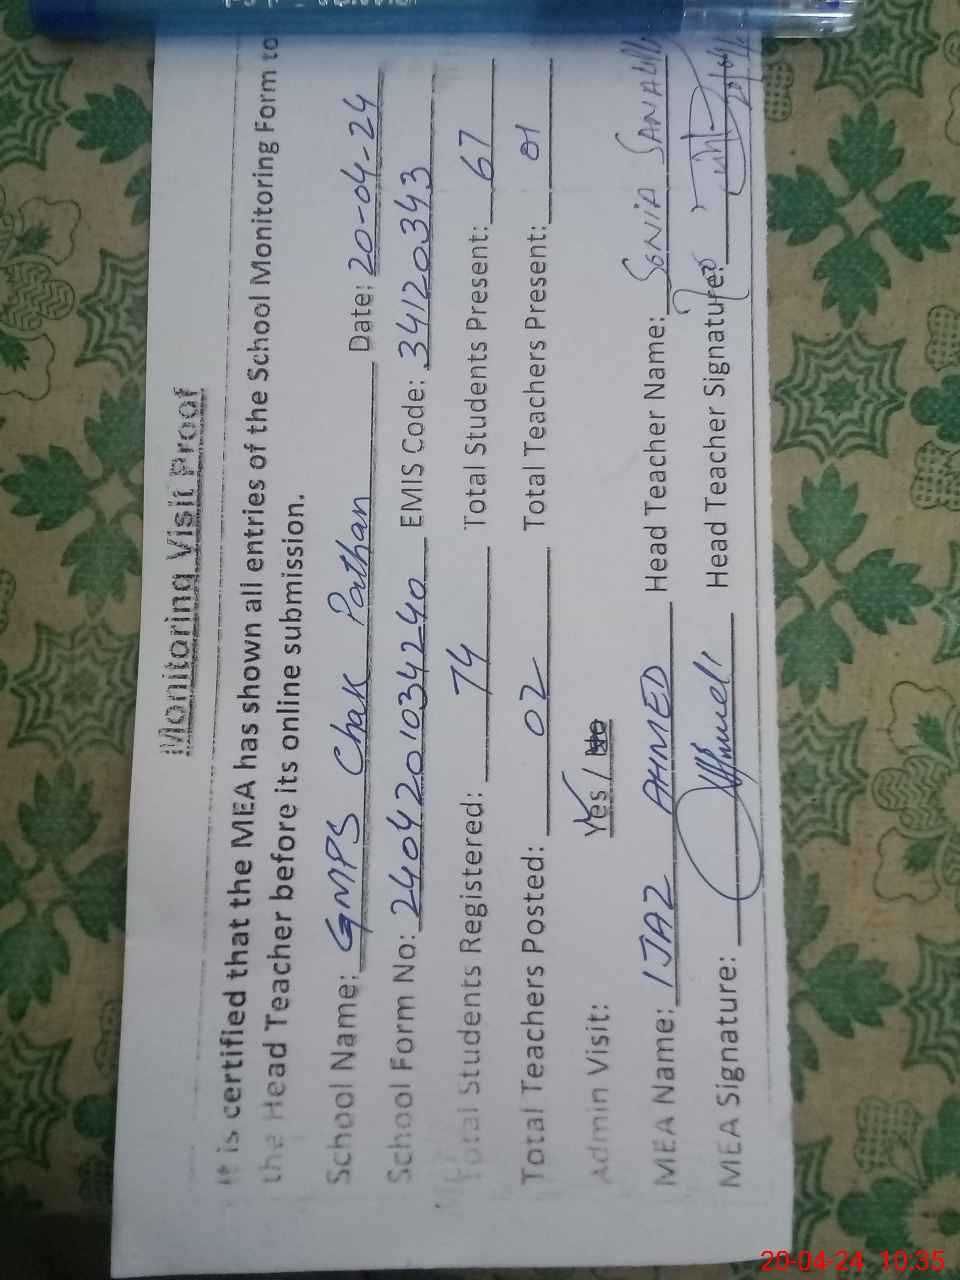 Monitoring Visit Proof
It is certified that the MEA has shown all entries of the School Monitoring Form to
the Head Teacher before its online submission.
School Name: GMPS Chak Pathan Date: 20-04-24
School Form No: 2404201034240 EMIS Code: 34120343
Total Students Registered: 74 Total Students Present: 67
Total Teachers Posted: 02 Total Teachers Present: 01
Admin Visit: Yes / No
MEA Name: IJAZ AHMED Head Teacher Name: SONIA
MEA Signature: Head Teacher Signature:
20-04-24 10:35